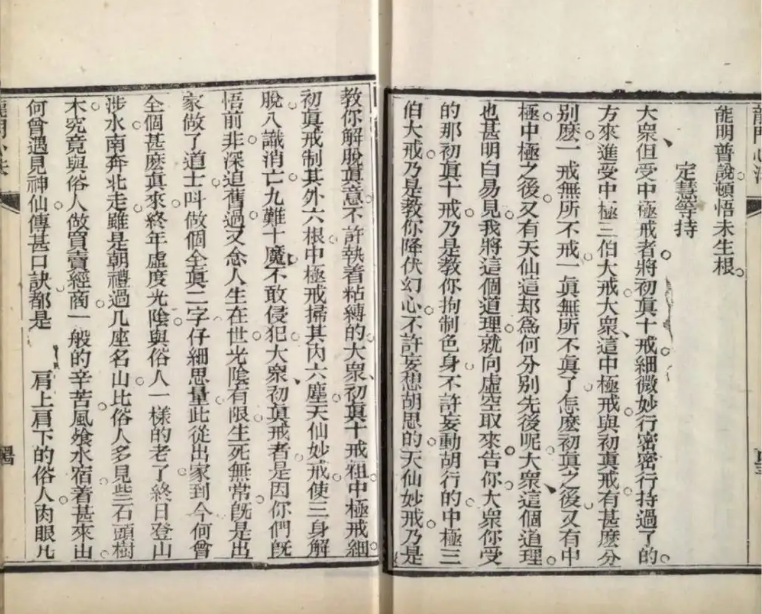 龍門心法
能明普說頓悟未生根
定慧等持
大眾但受中極戒者將初真十戒細微妙行密密行持過了的
方來進受中極三伯大戒大眾這中極戒與初真戒有甚麼分
別麼一戒無所不戒一真無所不真了怎麼初真之後又有中
極中極之後又有天仙這却為何分別先後呢大眾這個道理
也甚明白易見我將這個道理就向虛空取來告你大眾你受
的那初真十戒乃是教你拘制色身不許妄動胡行的中極三
伯大戒乃是教你降伏幻心不許妄想胡思的天仙妙戒乃是
教你解脫真意不許執着粘縛的大眾初真十戒粗中極戒細
初真戒制其外六根中極戒掃其內六塵天仙妙戒使三身解
脫八識消亡九難十魔不敢侵犯大眾初真戒者是因你們既
悟前非深追舊過又念人生在世光陰有限生死無常既是出
家做了道士叫做個全真二字仔細思量此從出家到今何曾
全個甚麼真來終年虛度光陰與俗人一樣的老了終日登山
涉水南奔北走雖是朝禮過几座名山比俗人多見些石頭樹
木究竟與俗人做買賣經商一般的辛苦風飧水宿着甚來由
何曾遇見神仙傳甚口訣都是 肩上肩下的俗人肉眼凡
龍門心法